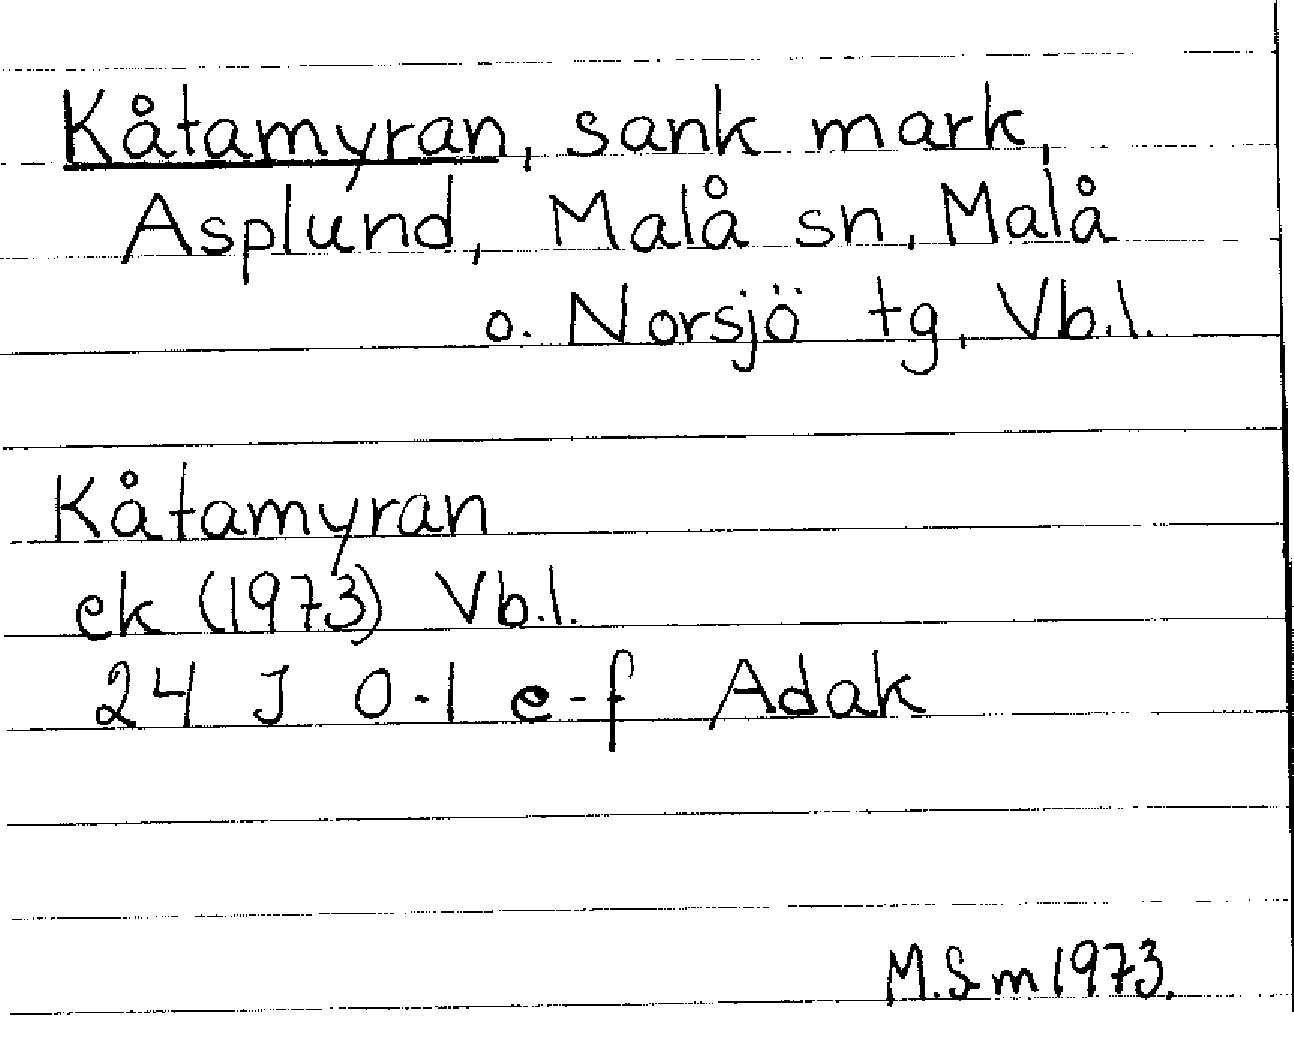 Kåtamyran, sank mark,
Asplund, Malå sn, Malå
o. Norsjö tg, Vb.l.
Kåtamyran
ek (1973) Vb.l.
24 J 0-1 e-f Adak
M.Sm 1973.